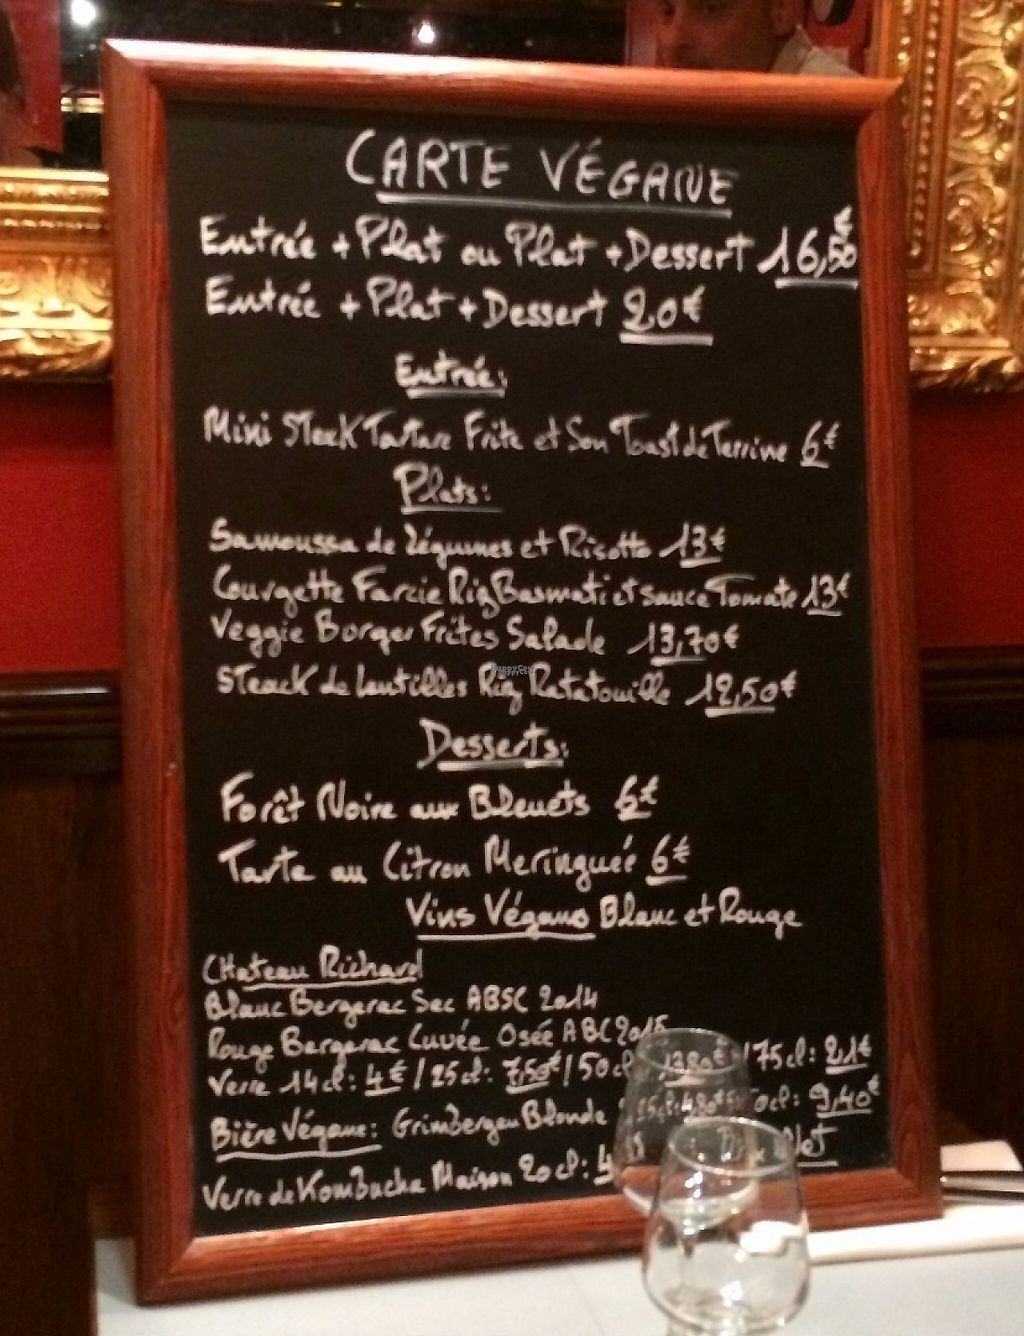 CARTE VÉGANE
Entrée + Plat ou Plat + Dessert 16,50€
Entrée + Plat + Dessert 20€
Entrée:
Mini Steack Tartare Frite et Son Toast de Terrine 6€
Plats:
Samoussa de légumes et Risotto 13€
Courgette Farcie Riz Basmati et sauce Tomate 13€
Veggie Borger Frites Salade 13,70€
Steack de lentilles Riz Ratatouille 12,50€
Desserts:
Forêt Noire aux Bleuets 6€
Tarte au Citron Meringueé 6€
Vins Végans Blanc et Rouge
CHateau Richard
Blanc Bergerac Sec ABSC 2014
Rouge Bergerac Cuvée Osée ABC 2015
Verre 14cl: 4€ / 25cl: 7,50€ / 50cl 13,80€ / 75cl: 21€
Bière Végane: Grimbergen Blonde 25cl: 4,80€ 50cl: 9,40€
Verre de Kombucha Maison 20cl: 4 Net